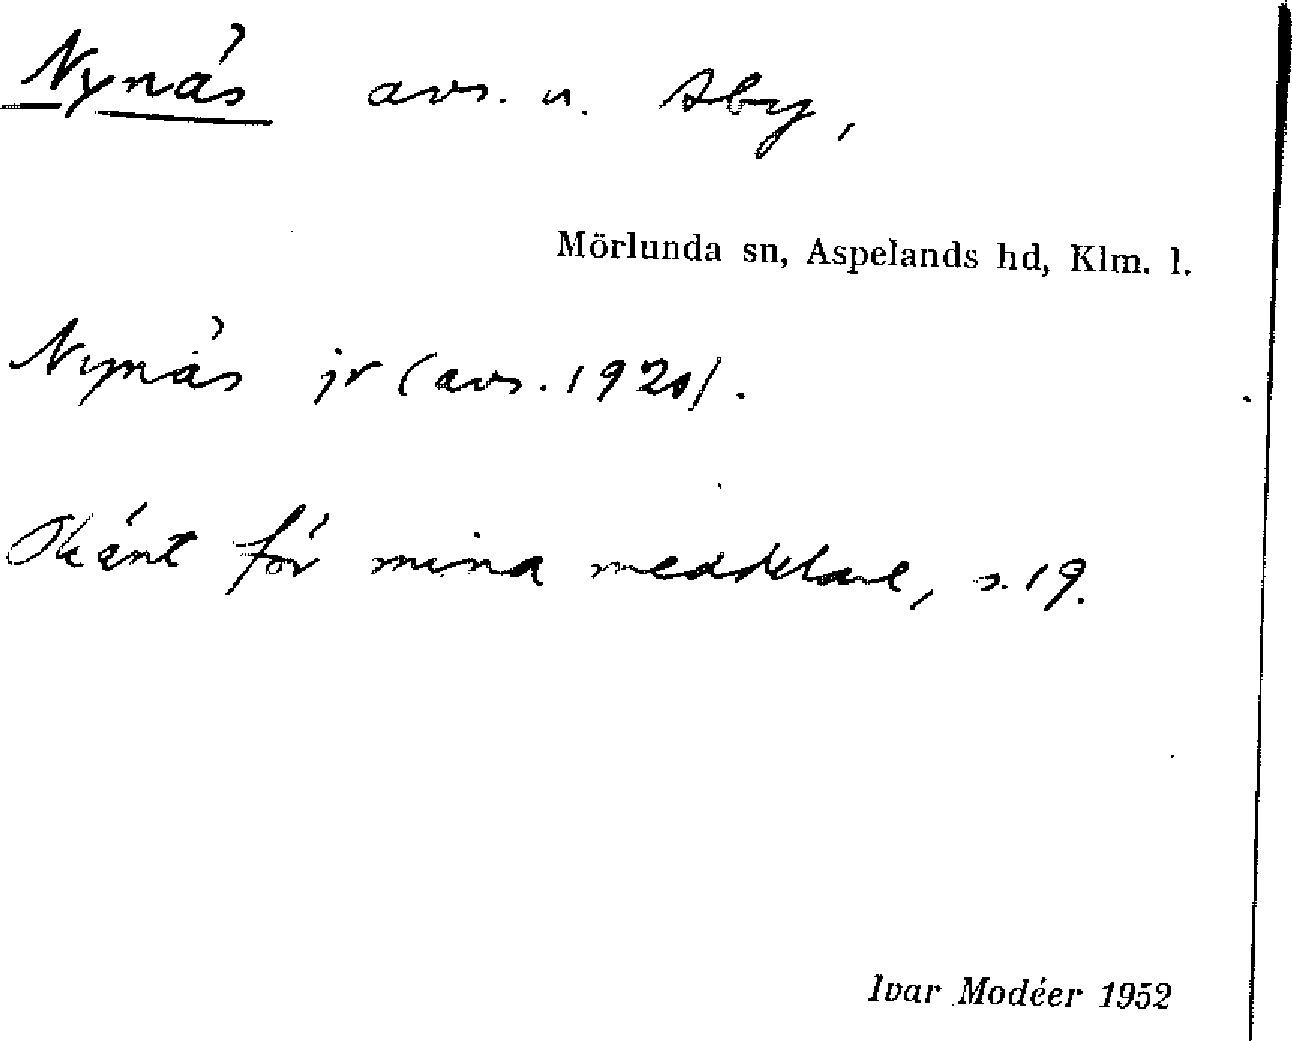 Nynäs avs. u. Åby,
Mörlunda sn, Aspelands hd, Klm. l.
Nynäs jr (avs. 1920).
Okänt för mina meddelare, s. 19.
Ivar Modéer 1952